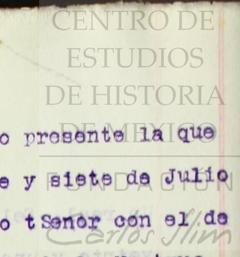 CENTRO DE
ESTUDIOS
DE HISTORIA
DE MEXICO
FUNDACION
Carlos Slim
o presente la que
e y siete de Julio
o tSenor con el de